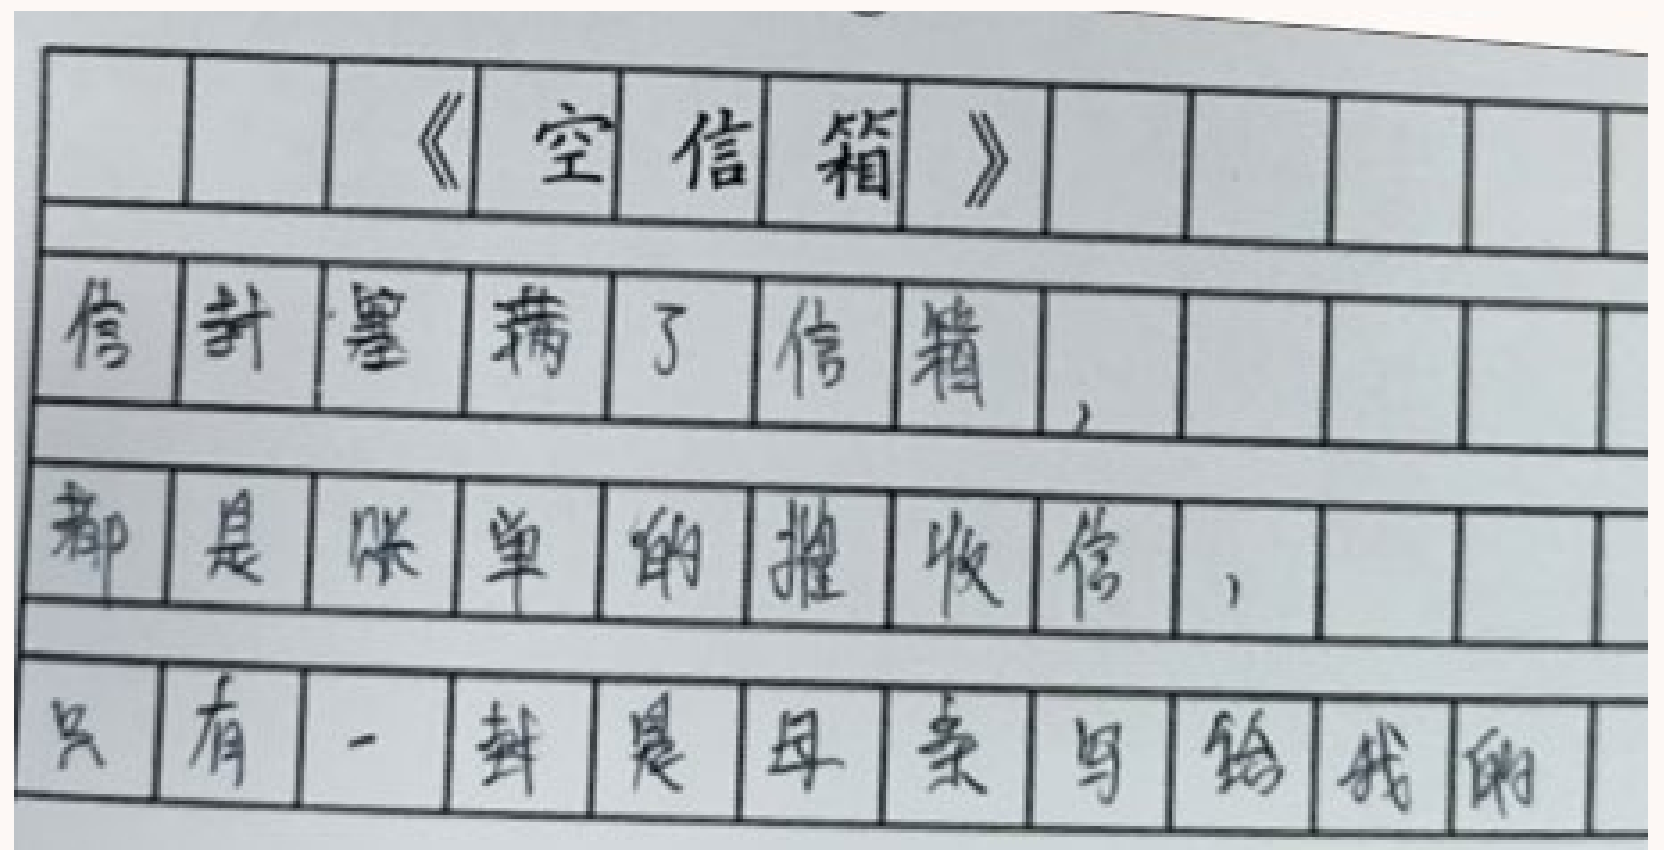 《空信箱》
信封塞满了信箱，
都是账单的推收信，
只有一封是母亲写给我的